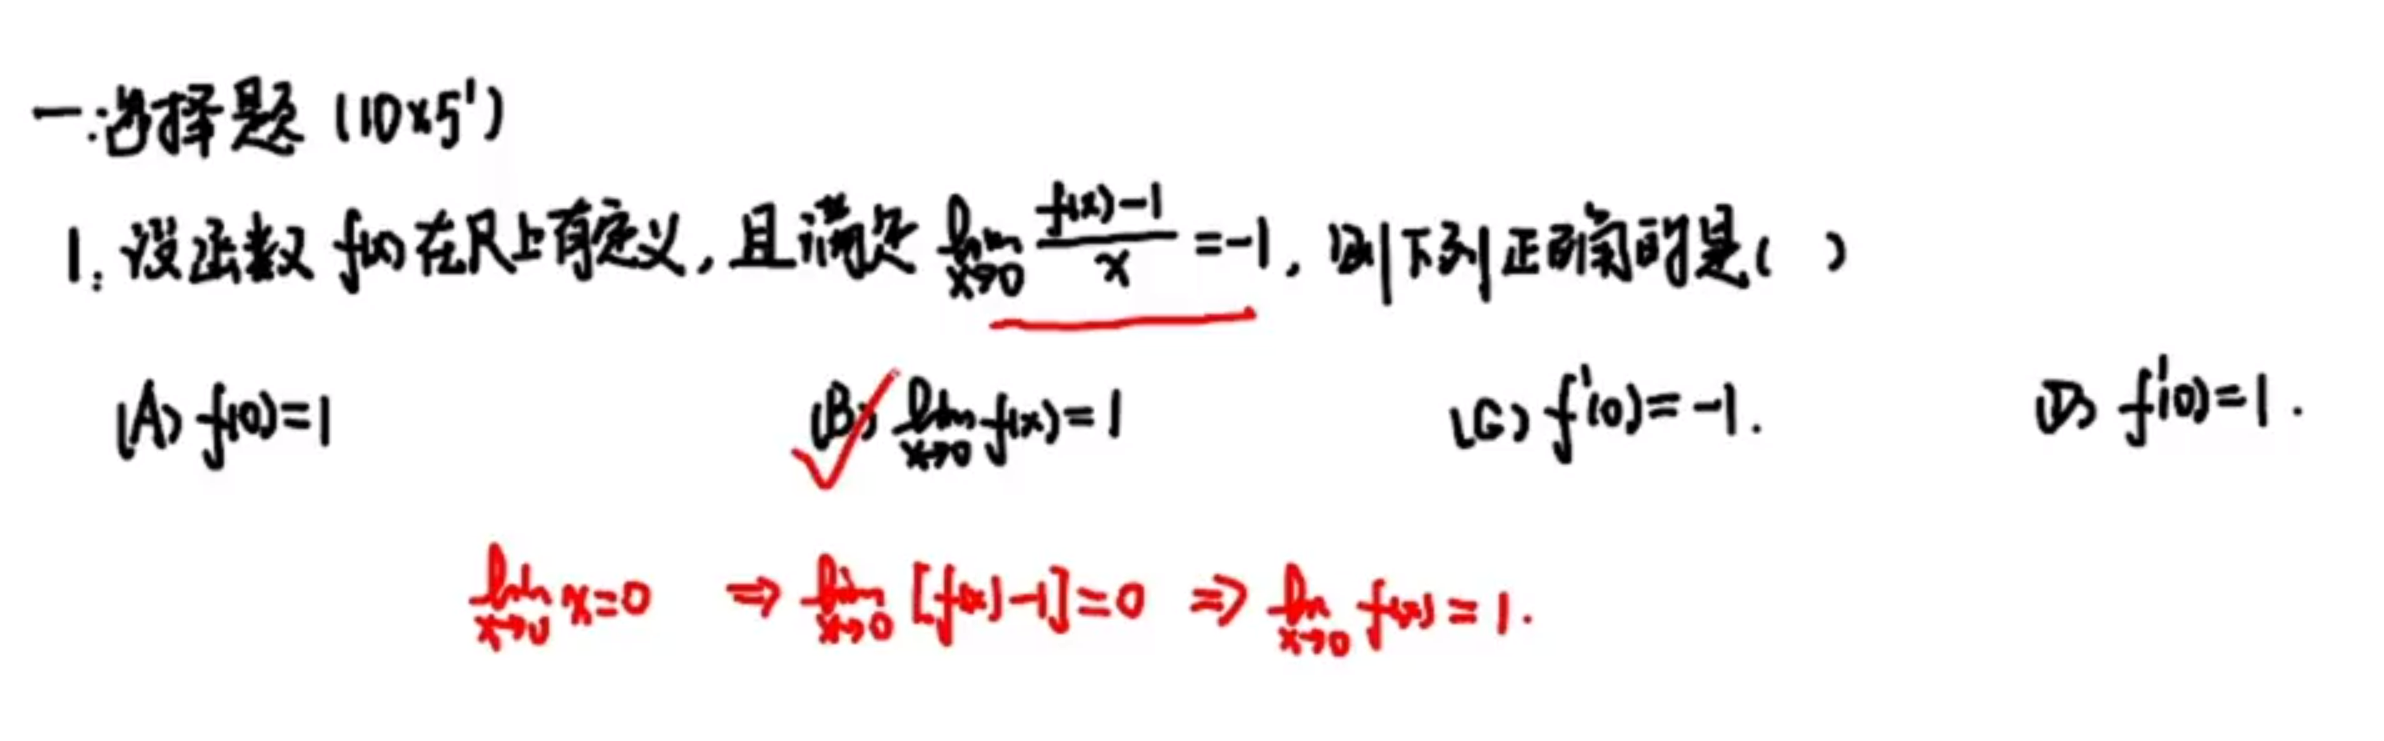 一.选择题 (10×5')
1. 设函数 f(x) 在R上有定义, 且满足 lim x→0 (f(x)-1)/x = -1, 则下列正确的是( )
(A) f(0)=1 (B) lim x→0 f(x)=1 (C) f'(0)=-1. (D) f'(0)=1.
lim x→0 x=0 ⇒ lim x→0 [f(x)-1]=0 ⇒ lim x→0 f(x)=1.